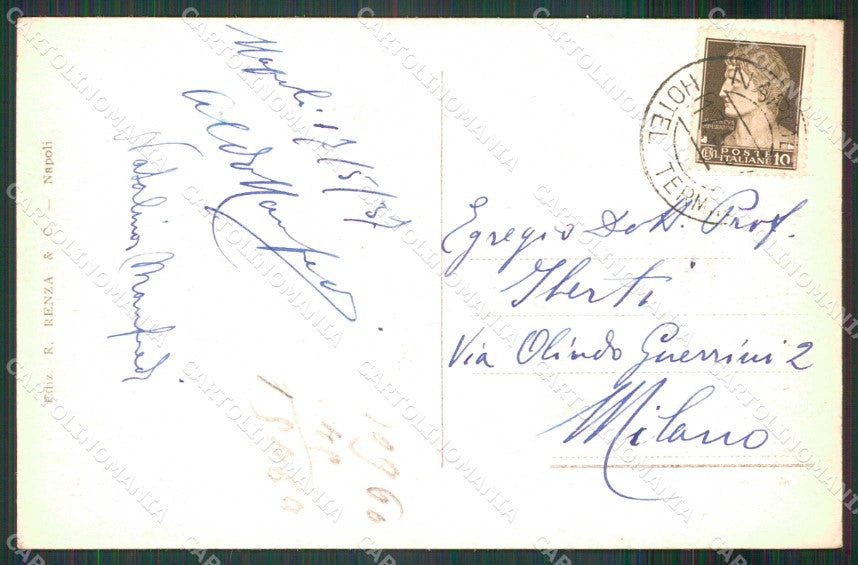 Napoli 17/5/37
Aldo Manfredi
Natalina Manfredi
Ediz. R. RENZA & C. – Napoli
POSTE
ITALIANE
CENT. 10
HOTEL TERM
Egregio Dott. Prof.
Iberti
Via Olindo Guerrini 2
Milano
CARTOLINOMANIA